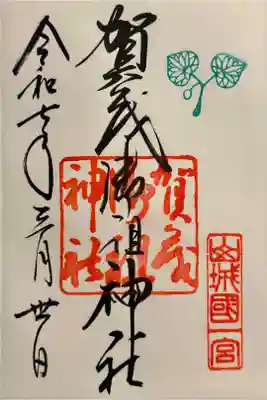 山城國一宮
賀茂御祖神社
賀茂
御祖
神社
令和七年三月卅日